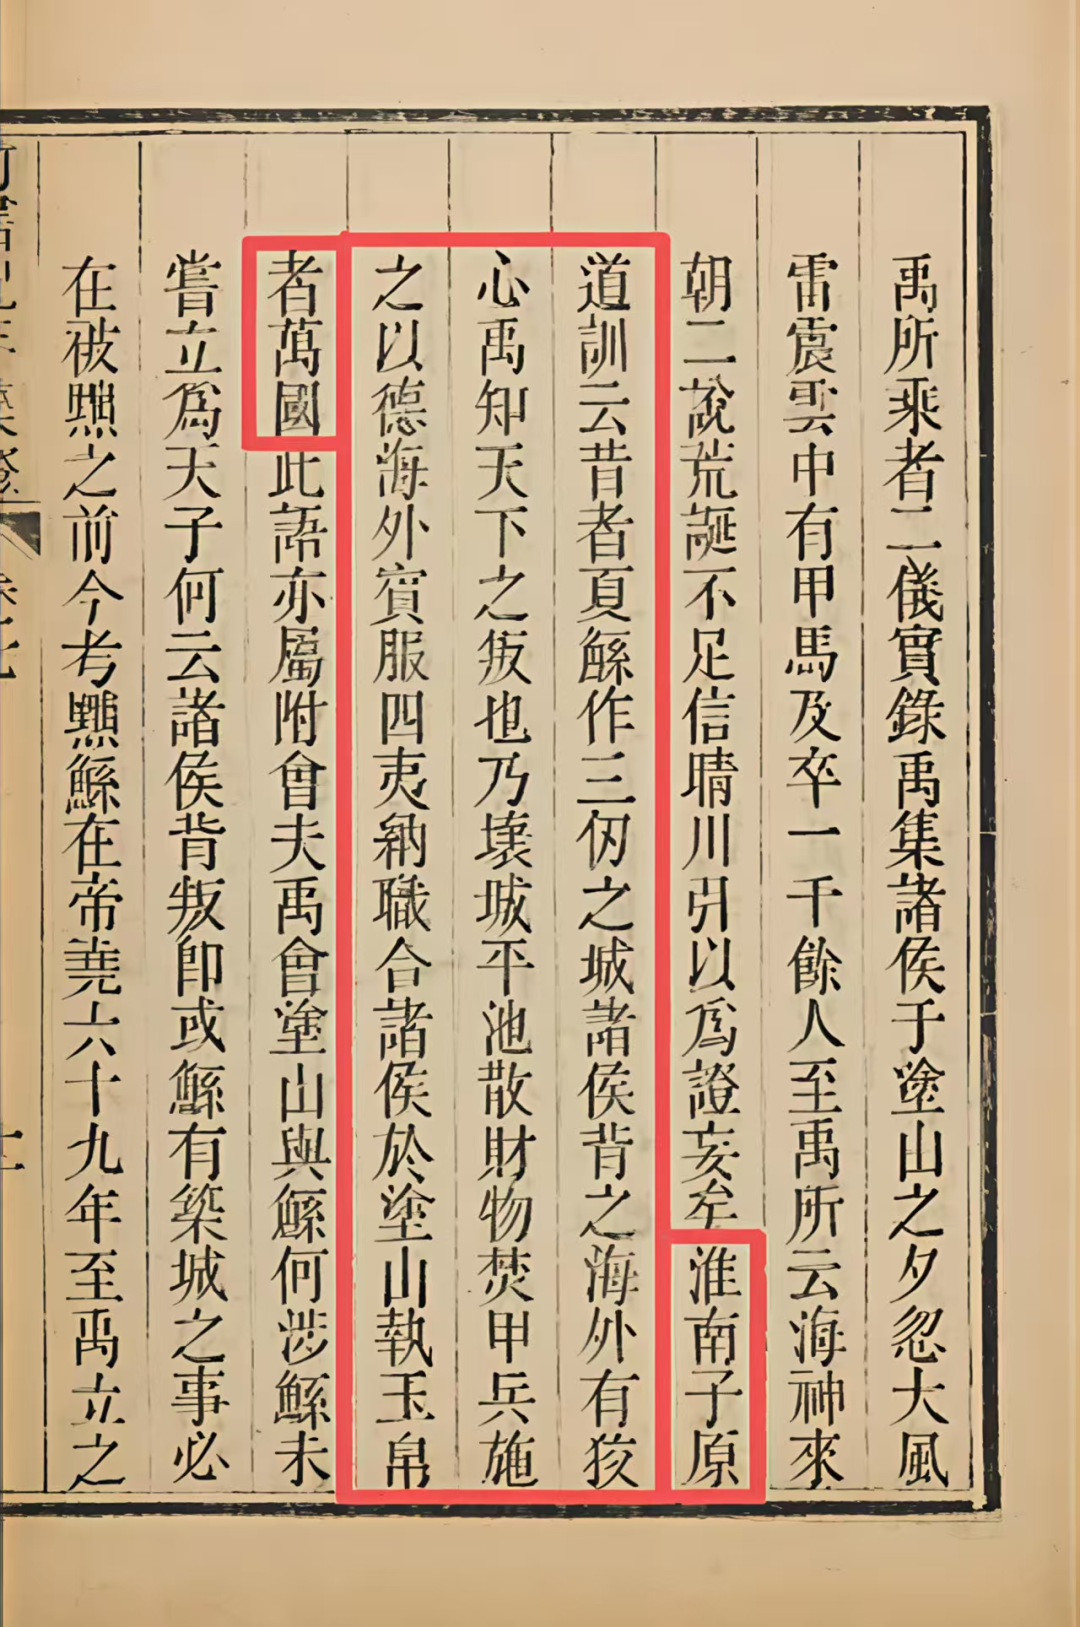 禹所乘者二儀實錄禹集諸侯于塗山之夕忽大風
雷震雲中有甲馬及卒一千餘人至禹所云海神來
朝二說荒誕不足信晴川引以爲證妄矣淮南子原
道訓云昔者夏鯀作三仞之城諸侯背之海外有狡
心禹知天下之叛也乃壞城平池散財物焚甲兵施
之以德海外賓服四夷納職合諸侯於塗山執玉帛
者萬國此語亦屬附會夫禹會塗山與鯀何涉鯀未
嘗立爲天子何云諸侯背叛卽或鯀有築城之事必
在被黜之前今考黜鯀在帝堯六十九年至禹立之